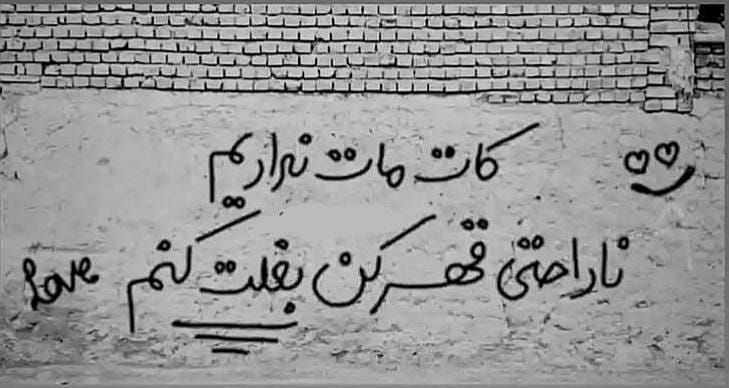 کات مات نداریم
ناراحتی قهر کن بغلت کنم
Love